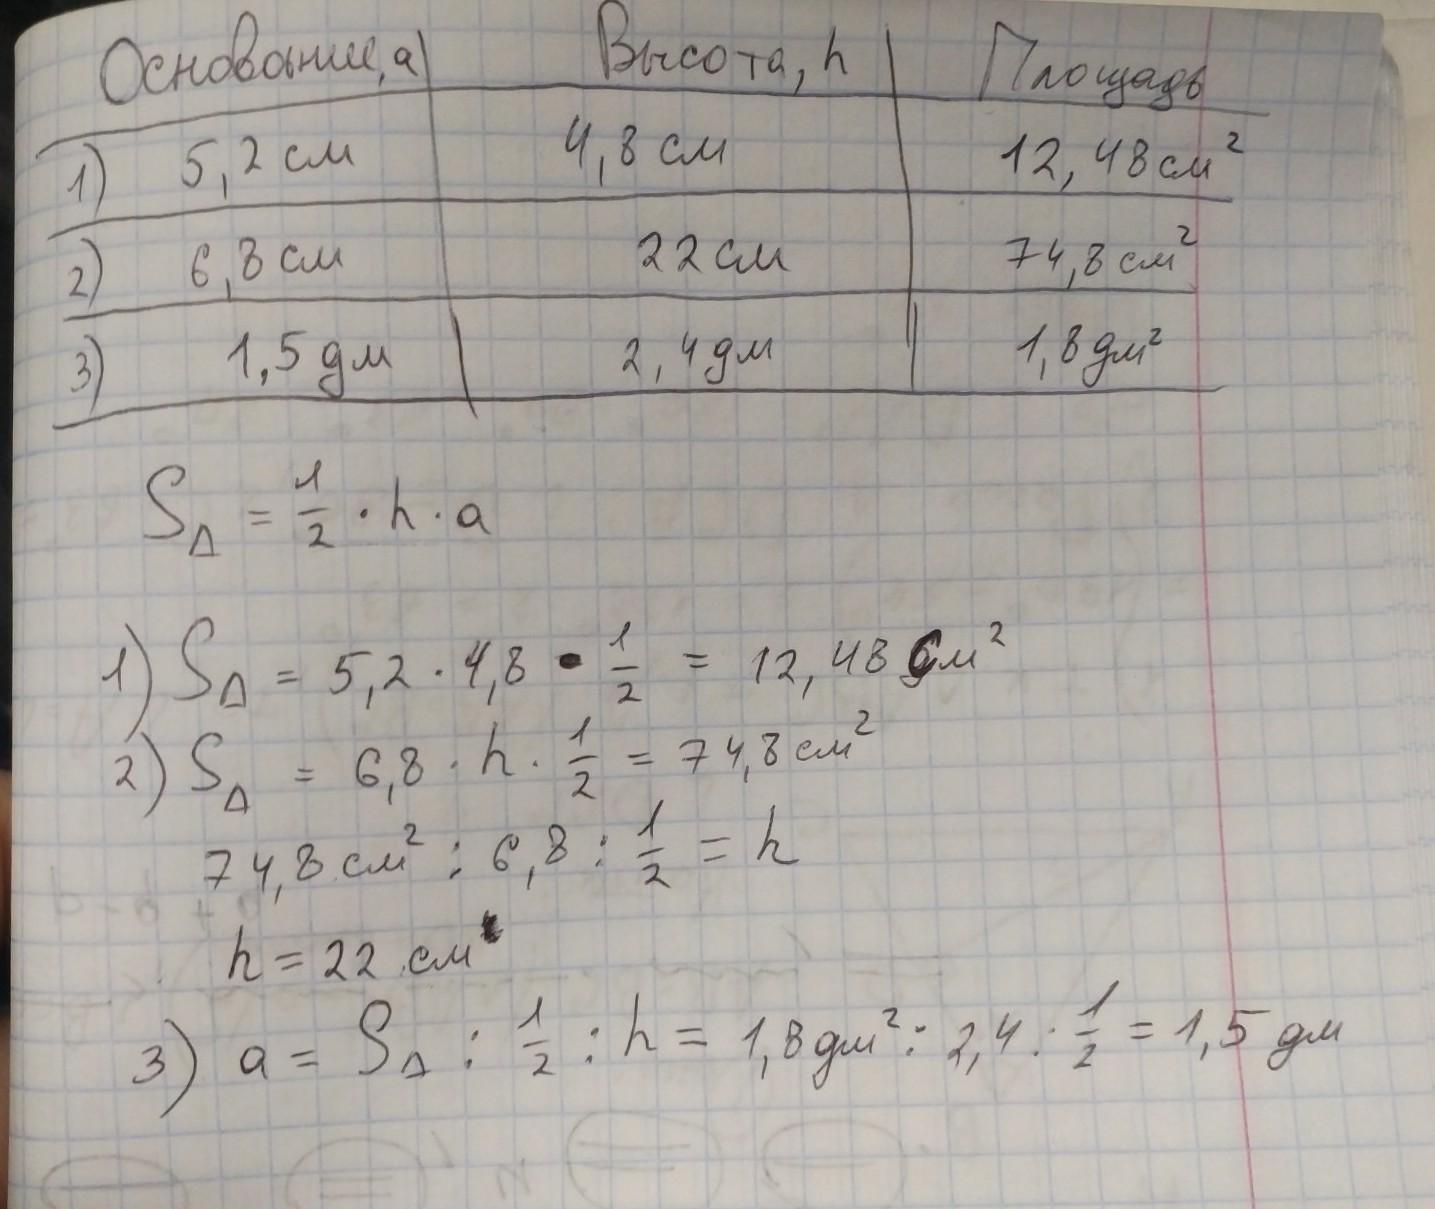 Основание, a | Высота, h | Площадь
1) 5,2 см | 4,8 см | 12,48 см²
2) 6,8 см | 22 см | 74,8 см²
3) 1,5 дм | 2,4 дм | 1,8 дм²
S△ = 1/2 · h · a
1) S△ = 5,2 · 4,8 · 1/2 = 12,48 см²
2) S△ = 6,8 · h · 1/2 = 74,8 см²
74,8 см² : 6,8 : 1/2 = h
h = 22 см
3) a = S△ : 1/2 : h = 1,8 дм² : 2,4 : 1/2 = 1,5 дм